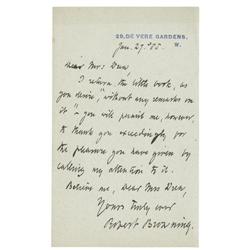 29, DE VERE GARDENS,
W.
Jan. 27. '88.
Dear Mrs. Drew,
I return the little book, as
you desire, "without any remarks on
it" – you will permit me, however,
to thank you exceedingly for
the pleasure you have given by
calling my attention to it.
Believe me, dear Mrs Drew,
Yours truly ever
Robert Browning.